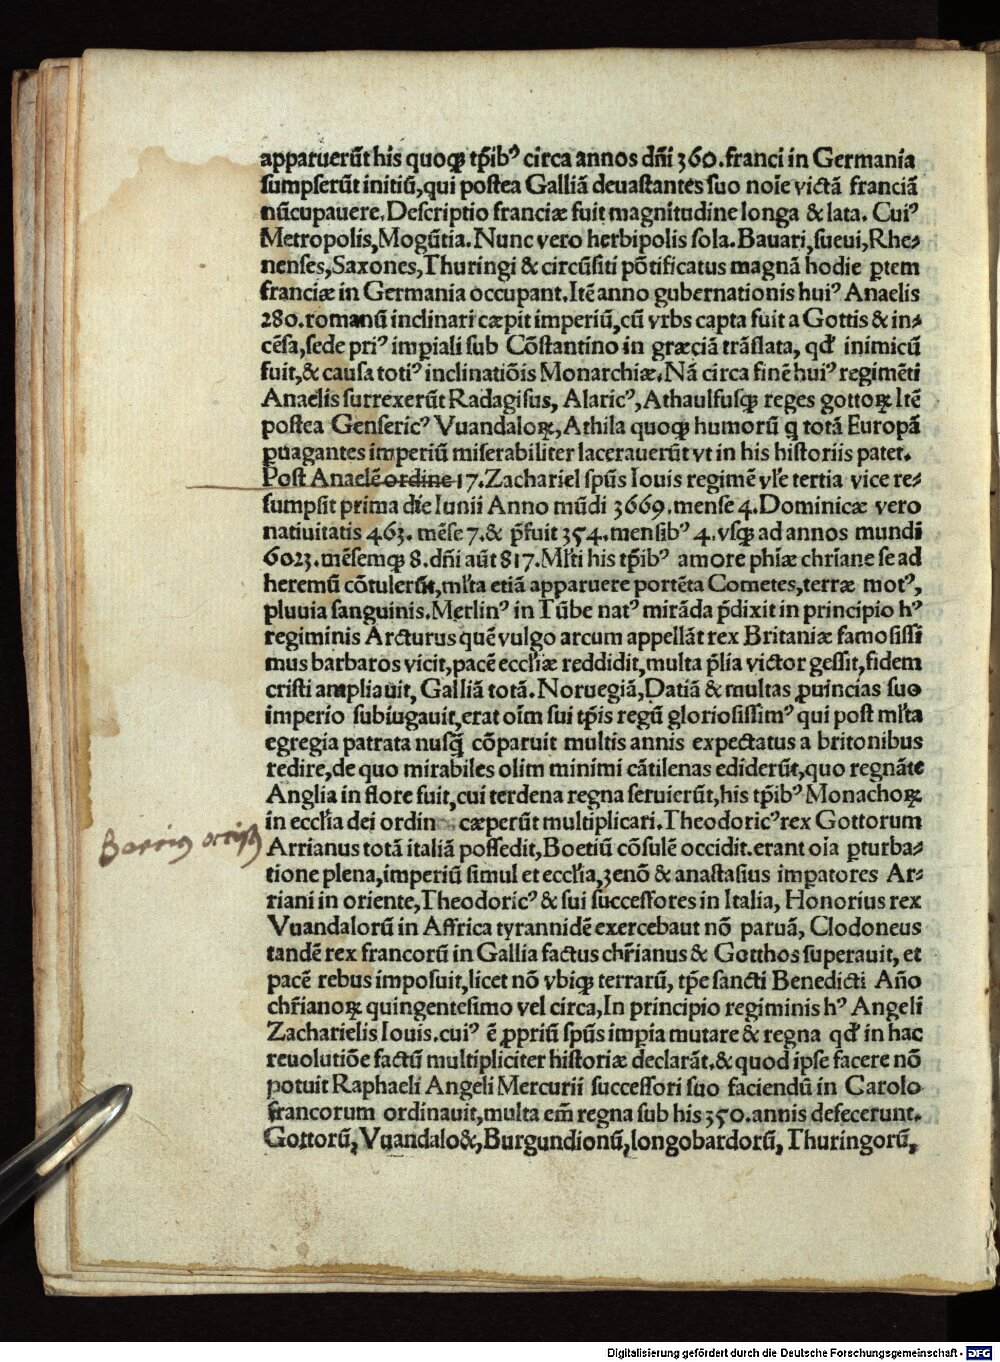 apparuerũt his quoqꝫ tp̃ibꝰ circa annos dñi 360. franci in Germania
sumpserũt initiũ, qui postea Galliã deuastantes suo noĩe victã franciã
nũcupauere. Descriptio franciæ fuit magnitudine longa & lata. Cuiꝰ
Metropolis, Mogũtia. Nunc vero herbipolis sola. Bauari, sueui, Rhe⸗
nenses, Saxones, Thuringi & circũsiti põtificatus magnã hodie ꝑtem
franciæ in Germania occupant. Itẽ anno gubernationis huiꝰ Anaelis
280. romanũ inclinari cæpit imperiũ, cũ vrbs capta fuit a Gottis & in⸗
cẽsa, sede priꝰ imꝑiali sub Cõstantino in græciã trãslata, qđ inimicũ
fuit, & causa totiꝰ inclinatiõis Monarchiæ. Nã circa finẽ huiꝰ regimẽti
Anaelis surrexerũt Radagisus, Alaricꝰ, Athaulfusqꝫ reges gottoꝝ Itẽ
postea Gensericꝰ Vuandaloꝝ, Athila quoqꝫ humorũ q totã Europã
ꝑuagantes imꝑiũ miserabiliter lacerauerũt vt in his historiis patet.
Post Anaelẽ ordine 17. Zachariel spũs Iouis regimẽ vl̃e tertia vice re⸗
sumpsit prima die Iunii Anno mũdi 3669. mense 4. Dominicæ vero
natiuitatis 463. mẽse 7. & p̃fuit 354. mensibꝰ 4. vsqꝫ ad annos mundi
6023. mẽsemqꝫ 8. dñi aũt 817. Ml̃ti his tp̃ibꝰ amore phĩæ chr̃iane se ad
heremũ cõtulerũt, ml̃ta etiã apparuere portẽta Cometes, terræ motꝰ,
pluuia sanguinis. Merlinꝰ in Tũbe natꝰ mirãda p̃dixit in principio hꝰ
regiminis Arcturus quẽ vulgo arcum appellãt rex Britaniæ famosissi
mus barbaros vicit, pacẽ eccl̃iæ reddidit, multa p̃lia victor gessit, fidem
cristi ampliauit, Galliã totã. Noruegiã, Datiã & multas ꝓuincias suo
imperio subiugauit, erat oĩm sui tp̃is regũ gloriosissimꝰ qui post ml̃ta
egregia patrata nusq̃ cõparuit multis annis expectatus a britonibus
redire, de quo mirabiles olim minimi cãtilenas ediderũt, quo regnãte
Anglia in flore fuit, cui terdena regna seruierũt, his tp̃ibꝰ Monachoꝝ
in eccl̃ia dei ordin cæperũt multiplicari. Theodoricꝰ rex Gottorum
Arrianus totã italiã possedit, Boetiũ cõsulẽ occidit. erant oĩa ꝑturba⸗
tione plena, imperiũ simul et eccl̃ia, zenõ & anastasius imꝑatores Ar⸗
riani in oriente, Theodoricꝰ & sui successores in Italia, Honorius rex
Vuandalorũ in Affrica tyrannidẽ exercebaut nõ paruã, Clodoneus
tandẽ rex francorũ in Gallia factus chr̃ianus & Gotthos superauit, et
pacẽ rebus imposuit, licet nõ vbiqꝫ terrarũ, tp̃e sancti Benedicti Año
chr̃ianoꝝ quingentesimo vel circa, In principio regiminis hꝰ Angeli
Zacharielis Iouis. cuiꝰ ẽ ꝓpriũ spũs imꝑia mutare & regna qđ in hac
reuolutiõe factũ multipliciter historiæ declarãt. & quod ipse facere nõ
potuit Raphaeli Angeli Mercurii successori suo faciendũ in Carolo
francorum ordinauit, multa em̃ regna sub his 350. annis defecerunt.
Gottorũ, Vuandalo&, Burgundionũ, longobardorũ, Thuringorũ,
Digitalisierung gefördert durch die Deutsche Forschungsgemeinschaft - DFG